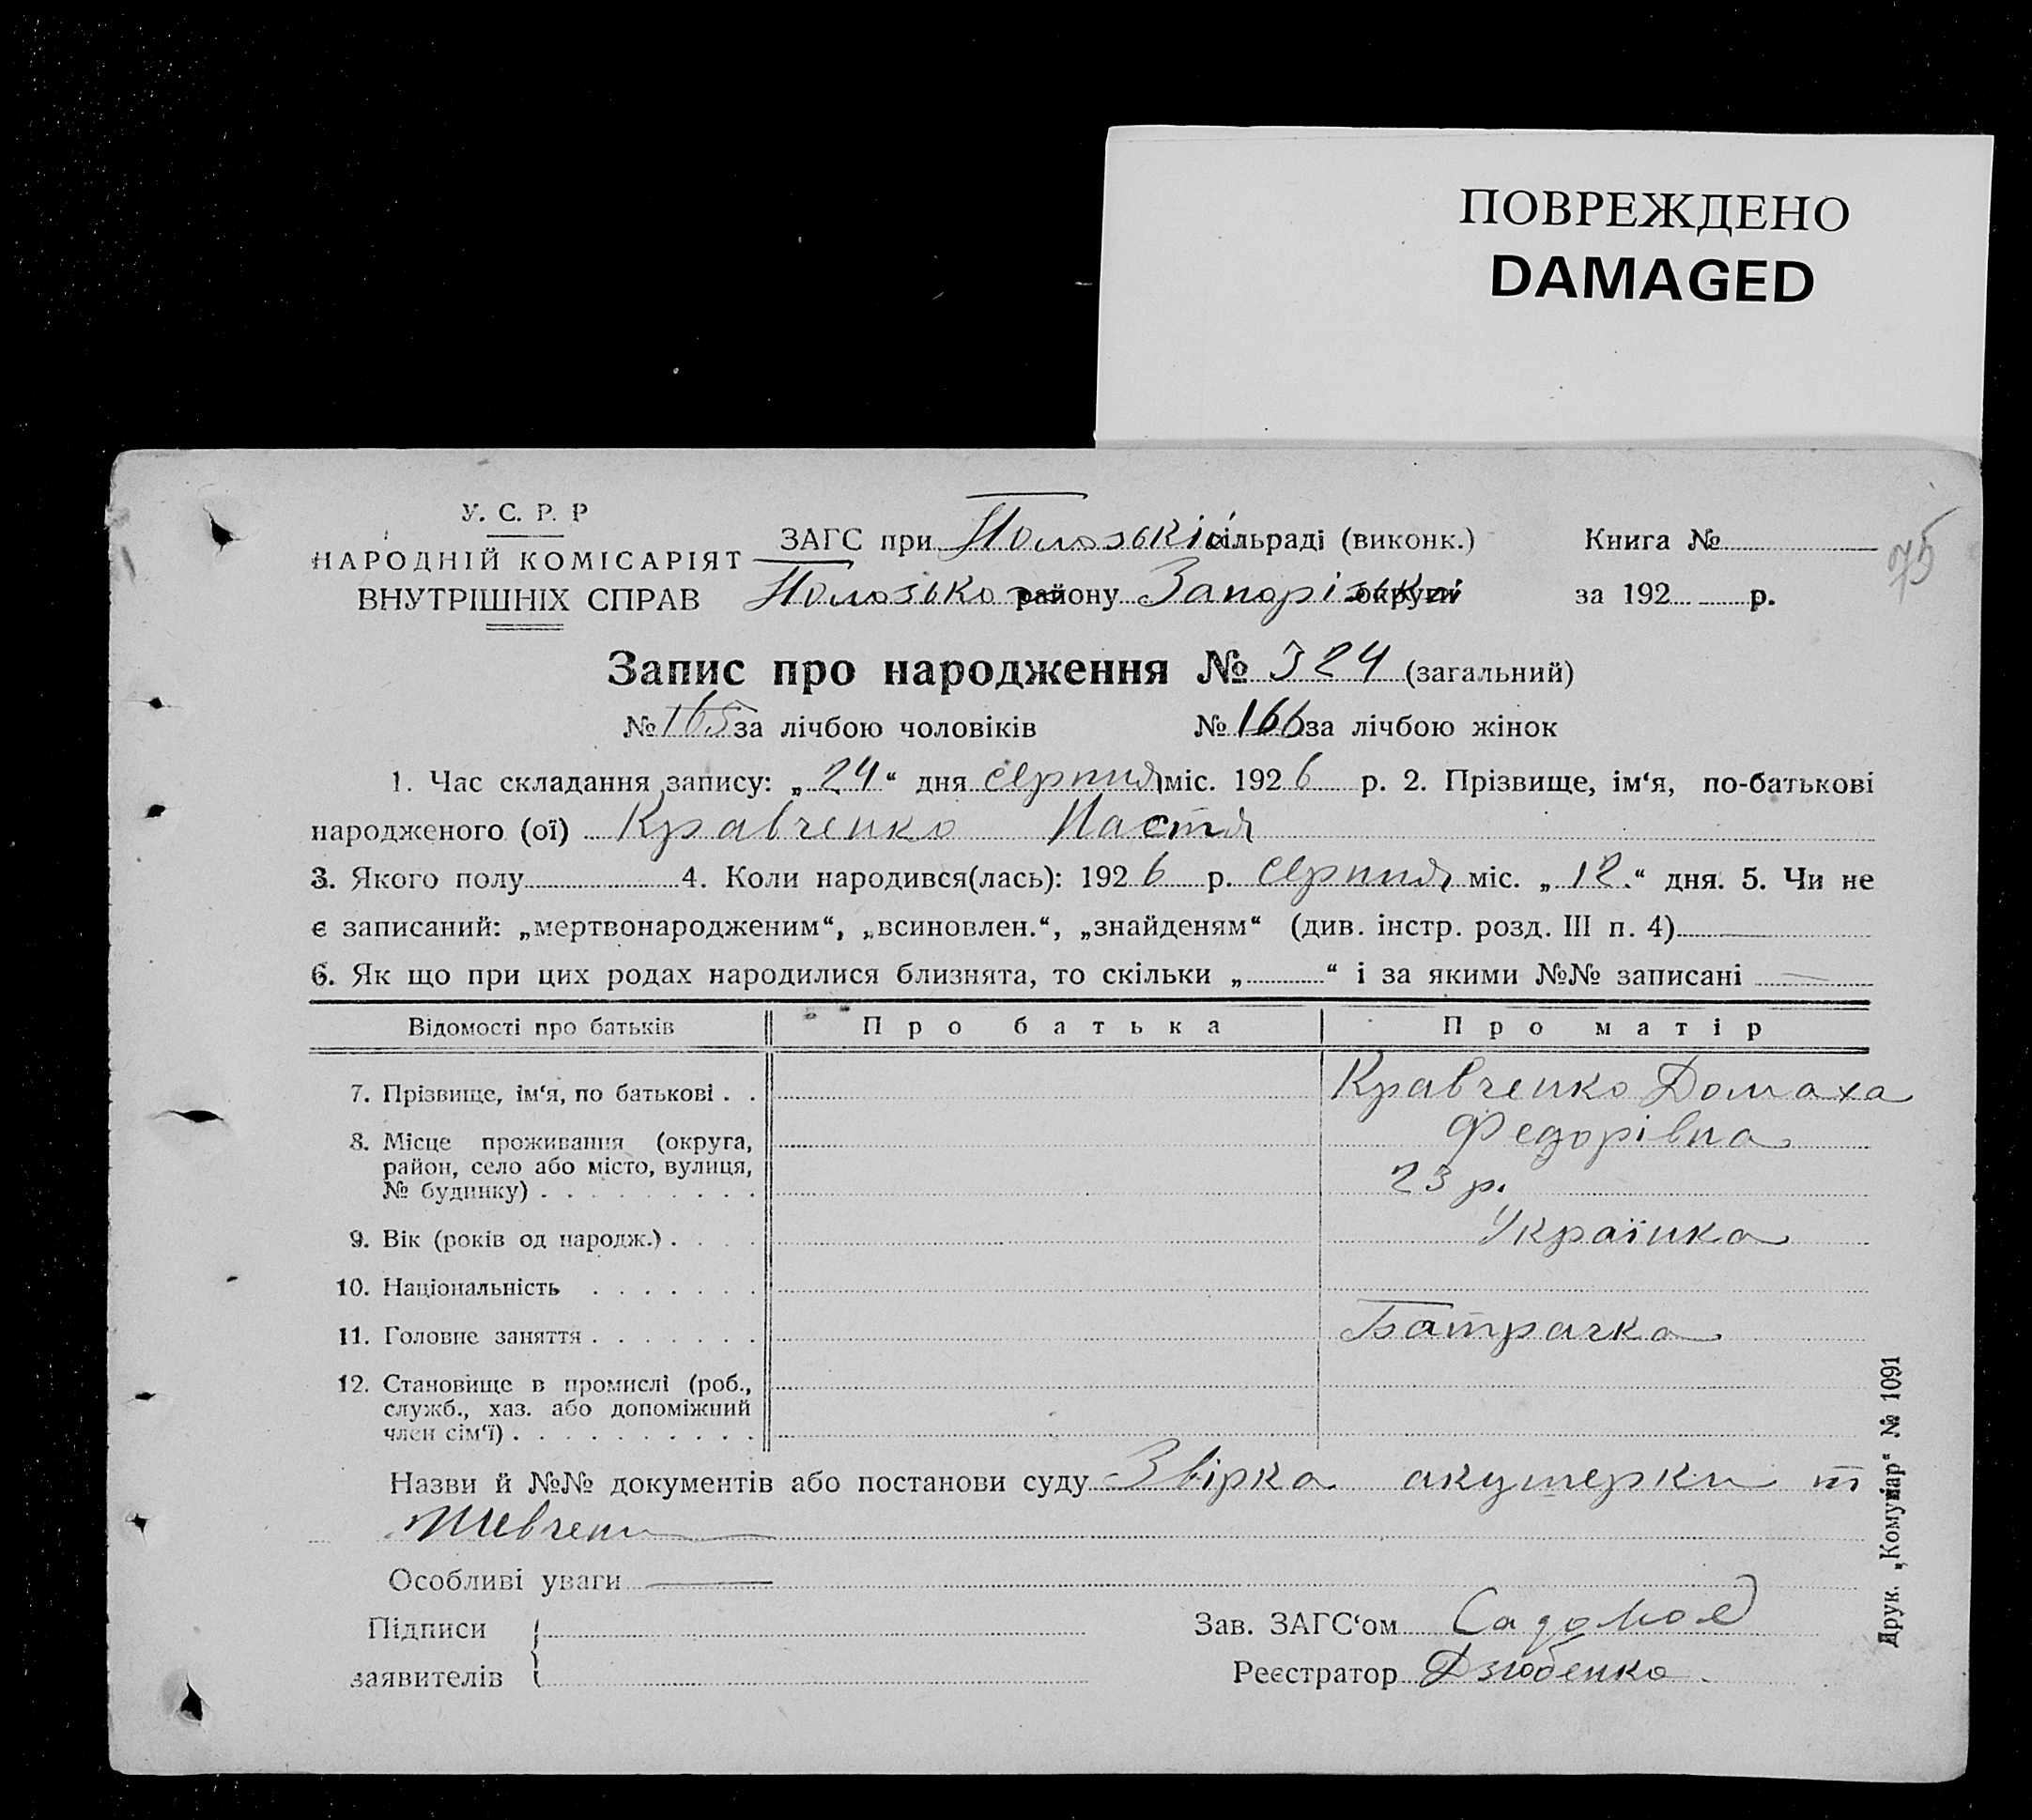 ПОВРЕЖДЕНО
DAMAGED
75
У. С. Р. Р
НАРОДНІЙ КОМІСАРІЯТ
ВНУТРІШНІХ СПРАВ
ЗАГС при Пологській сільраді (виконк.)
Пологсько району Запорізької округи
Книга №
за 192 р.
Запис про народження № 324 (загальний)
№ 165 за лічбою чоловіків № 166 за лічбою жінок
1. Час складання запису: „24“ дня серпня міс. 1926 р. 2. Прізвище, ім‘я, по-батькові
народженого (ої) Кравченко Настя
3. Якого полу 4. Коли народився(лась): 1926 р. серпня міс. „12.“ дня. 5. Чи не
є записаний: „мертвонародженим“, „всиновлен.“, „знайденям“ (див. інстр. розд. III п. 4)
6. Як що при цих родах народилися близнята, то скільки „ “ і за якими №№ записані
Відомості про батьків Про батька Про матір
7. Прізвище, ім‘я, по батькові . . Кравченко Домаха
Федорівна
8. Місце проживання (округа,
район, село або місто, вулиця,
№ будинку) . . . . . . . . . 23 р.
9. Вік (років од народж.) . . . . Українка
10. Національність . . . . . . .
11. Головне заняття . . . . . . . Батрачка
12. Становище в промислі (роб.,
служб., хаз. або допоміжний
член сім‘ї) . . . . . . . . . .
Назви й №№ документів або постанови суду Звірка акушерки т
Шевченк
Особливі уваги
Підписи
заявителів
Зав. ЗАГС‘ом
Реєстратор Дзюбенко
Друк. „Комунар“ № 1091